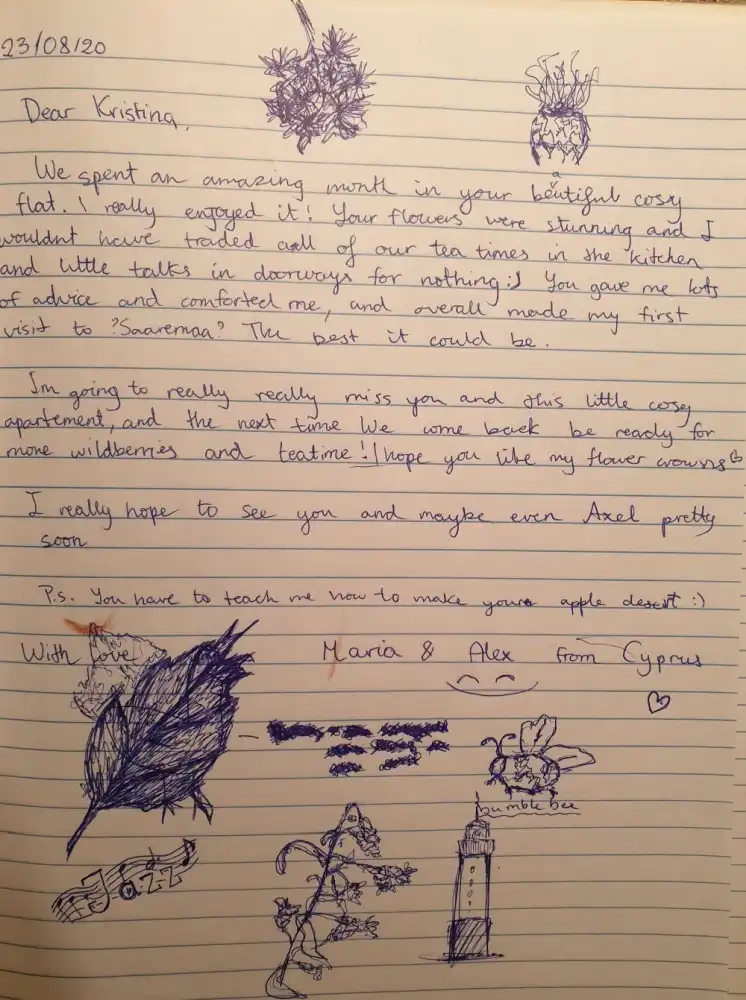 23/08/20
Dear Kristina,
We spent an amazing month in your beautiful cosy
flat. I really enjoyed it! Your flowers were stunning and I
wouldnt have traded all of our tea times in the kitchen
and little talks in doorways for nothing:) You gave me lots
of advice and comforted me, and overall made my first
visit to ?Saaremaa? The best it could be.
Im going to really really miss you and this little cosy
apartement, and the next time We come back be ready for
more wildberries and teatime! I hope you like my flower crowns
I really hope to see you and maybe even Axel pretty
soon
P.s. You have to teach me how to make your apple desert :)
With love Maria & Alex from Cyprus
bumble bee
Jazz